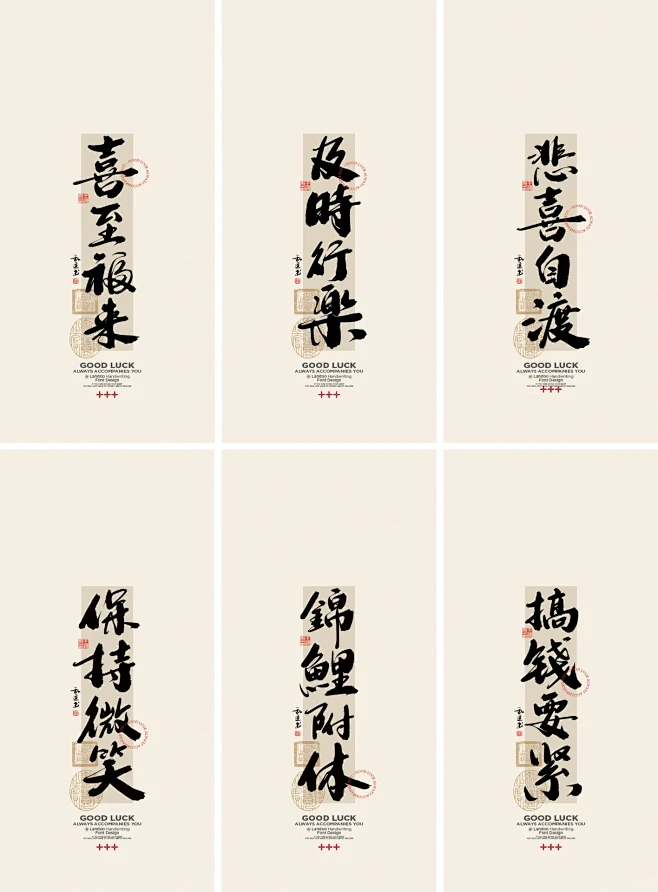 喜至福来
GOOD LUCK
ALWAYS ACCOMPANIES YOU
@ Landoo Handwriting
Font Design
及時行樂
GOOD LUCK
ALWAYS ACCOMPANIES YOU
@ Landoo Handwriting
Font Design
悲喜自渡
GOOD LUCK
ALWAYS ACCOMPANIES YOU
@ Landoo Handwriting
Font Design
保持微笑
GOOD LUCK
ALWAYS ACCOMPANIES YOU
@ Landoo Handwriting
Font Design
錦鯉附体
GOOD LUCK
ALWAYS ACCOMPANIES YOU
@ Landoo Handwriting
Font Design
搞錢要紧
GOOD LUCK
ALWAYS ACCOMPANIES YOU
@ Landoo Handwriting
Font Design